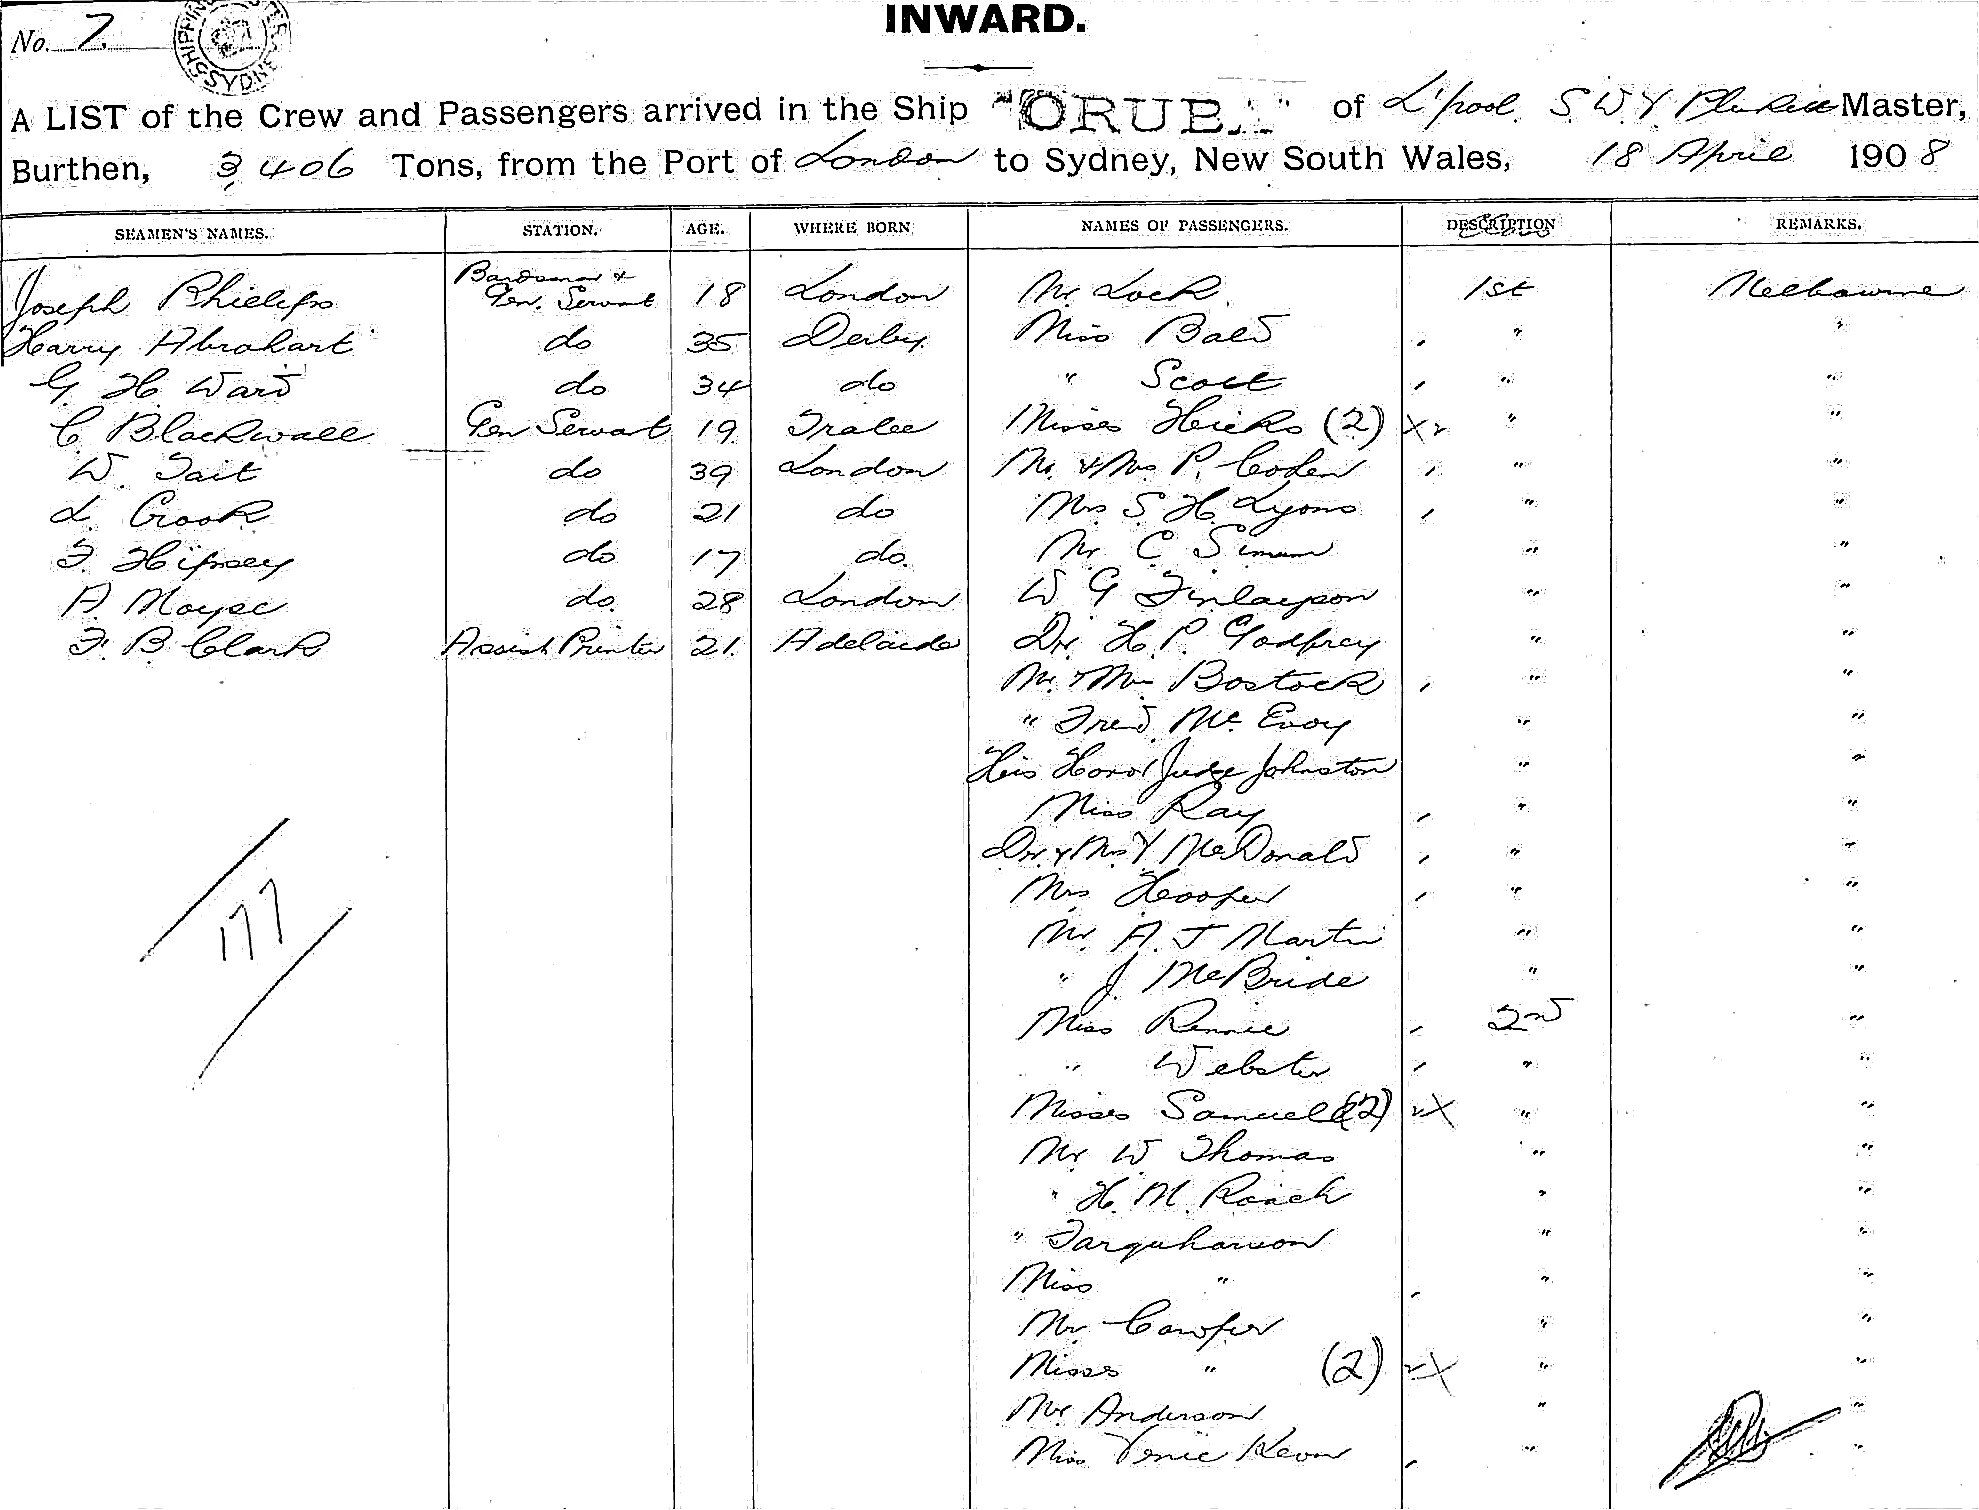 INWARD.
No. 7.
SHIPPING SYDNEY
A LIST of the Crew and Passengers arrived in the Ship "ORUBA" of L'pool, S W Y Master,
Burthen, 3,406 Tons, from the Port of London to Sydney, New South Wales, 18 April 1908
SEAMEN'S NAMES. STATION. AGE. WHERE BORN NAMES OF PASSENGERS. DESCRIPTION Class REMARKS.
Joseph Phillips Bandsman & Gen. Servant 18 London Mr. Lock. 1st Melbourne
Harry Abrahart do 35 Derby Miss Bald " "
G. H. Ward do 34 do " Scott " "
C Blackwall Gen Servant 19 Tralee Misses Hicks (2) X " "
W. Tait do 39 London Mr. & Mrs P. Cohen " "
L. Crook do 21 do Mrs S. H. Lyons " "
F. Hipsey do 17 do. Mr C " "
A. Moyse do. 28 London W G Finlayson " "
F. B. Clark Assist Printer 21. Adelaide Dr. H. P. Godfrey " "
Mr. & Mrs Bostock " "
" Fred. Mc. Evoy " "
His Honor Judge Johnston " "
Miss Ray " "
Dr. & Mrs Y McDonald " "
Mrs Hooper " "
Mr. A. J Martin " "
" J. McBride " "
Miss Rennie 2nd "
" Webster " "
Misses Samuell (2) X " "
Mr W Thomas " "
" H. M. Roach " "
" Farquharson " "
Miss " " "
Mr Cowper " "
Misses " (2) X " "
Mr Anderson " "
Miss Kevon " "
177